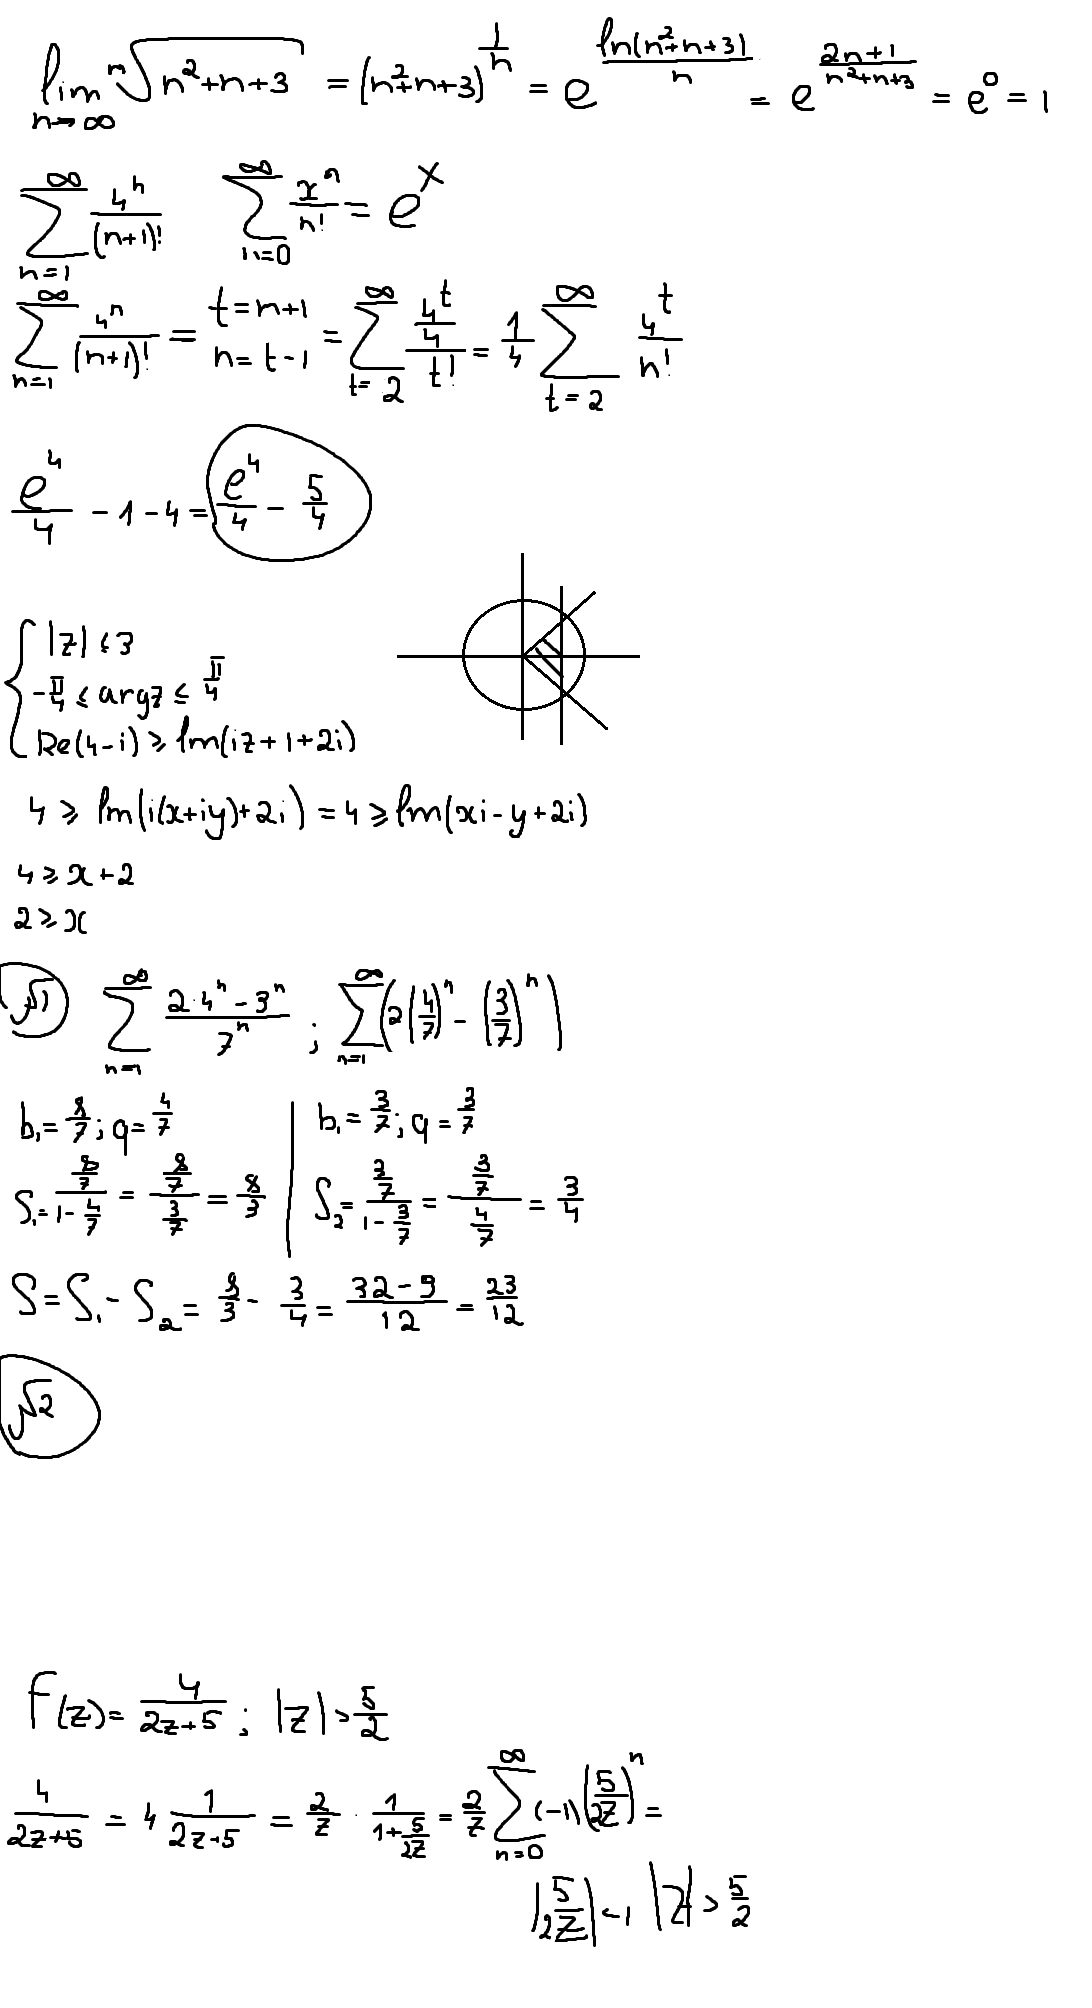 lim n→∞ ⁿ√(n²+n+3) = (n²+n+3)^(1/n) = e^(ln(n²+n+3)/n) = e^((2n+1)/(n²+n+3)) = e⁰ = 1
∑_{n=1}^{∞} 4ⁿ/(n+1)! ∑_{n=0}^{∞} xⁿ/n! = e^x
∑_{n=1}^{∞} 4ⁿ/(n+1)! = t=n+1 n=t-1 = ∑_{t=2}^{∞} (4^t/4)/t! = 1/4 ∑_{t=2}^{∞} 4^t/n!
e⁴/4 - 1 - 4 = e⁴/4 - 5/4
{ |z| ≤ 3
-π/4 ≤ argz ≤ π/4
Re(4-i) ≥ Im(iz+1+2i)
4 ≥ Im(i(x+iy)+2i) = 4 ≥ Im(xi-y+2i)
4 ≥ x+2
2 ≥ x
√1 ∑_{n=1}^{∞} (2·4ⁿ-3ⁿ)/7ⁿ ; ∑_{n=1}^{∞} (2(4/7)ⁿ - (3/7)ⁿ)
b₁=8/7; q=4/7 | b₁=3/7; q=3/7
S₁=(8/7)/(1-4/7) = (8/7)/(3/7) = 8/3 | S₂=(3/7)/(1-3/7) = (3/7)/(4/7) = 3/4
S=S₁-S₂ = 8/3 - 3/4 = (32-9)/12 = 23/12
√2
F(z)= 4/(2z+5) ; |z|>5/2
4/(2z+5) = 4 1/(2z+5) = 2/z · 1/(1+5/2z) = 2/z ∑_{n=0}^{∞} (-1)(5/2z)ⁿ =
|5/2z|<1 |z|>5/2